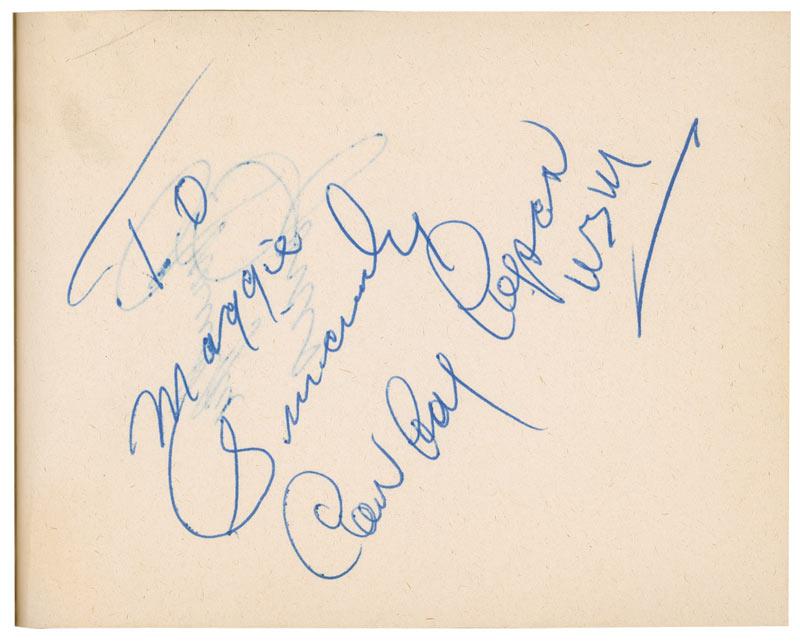 To
Maggie
Sincerely
Cow Boy Copas
WSM